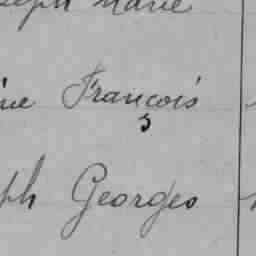 seph Marie
ine François
ph Georges